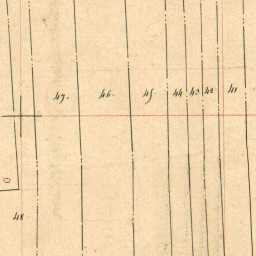 47. 46. 45. 44. 43. 42. 41
0
48